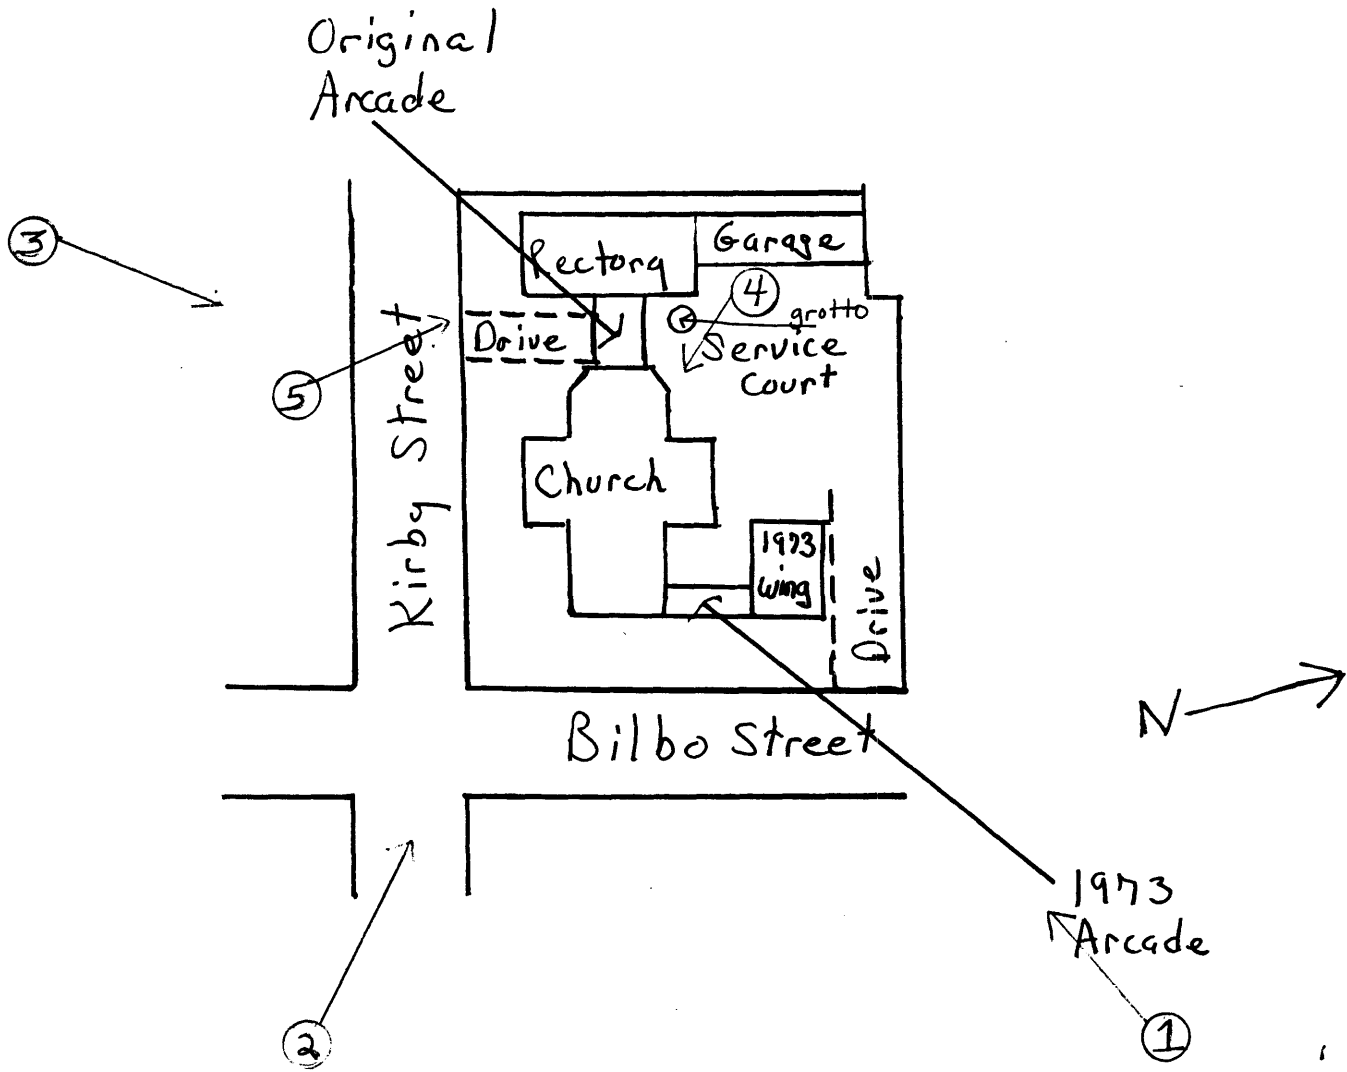 Original
Arcade
Rectory
Garage
3
4
grotto
Drive
Service
court
5
Kirby Street
Church
1973
wing
Drive
N
Bilbo Street
1973
Arcade
2
1